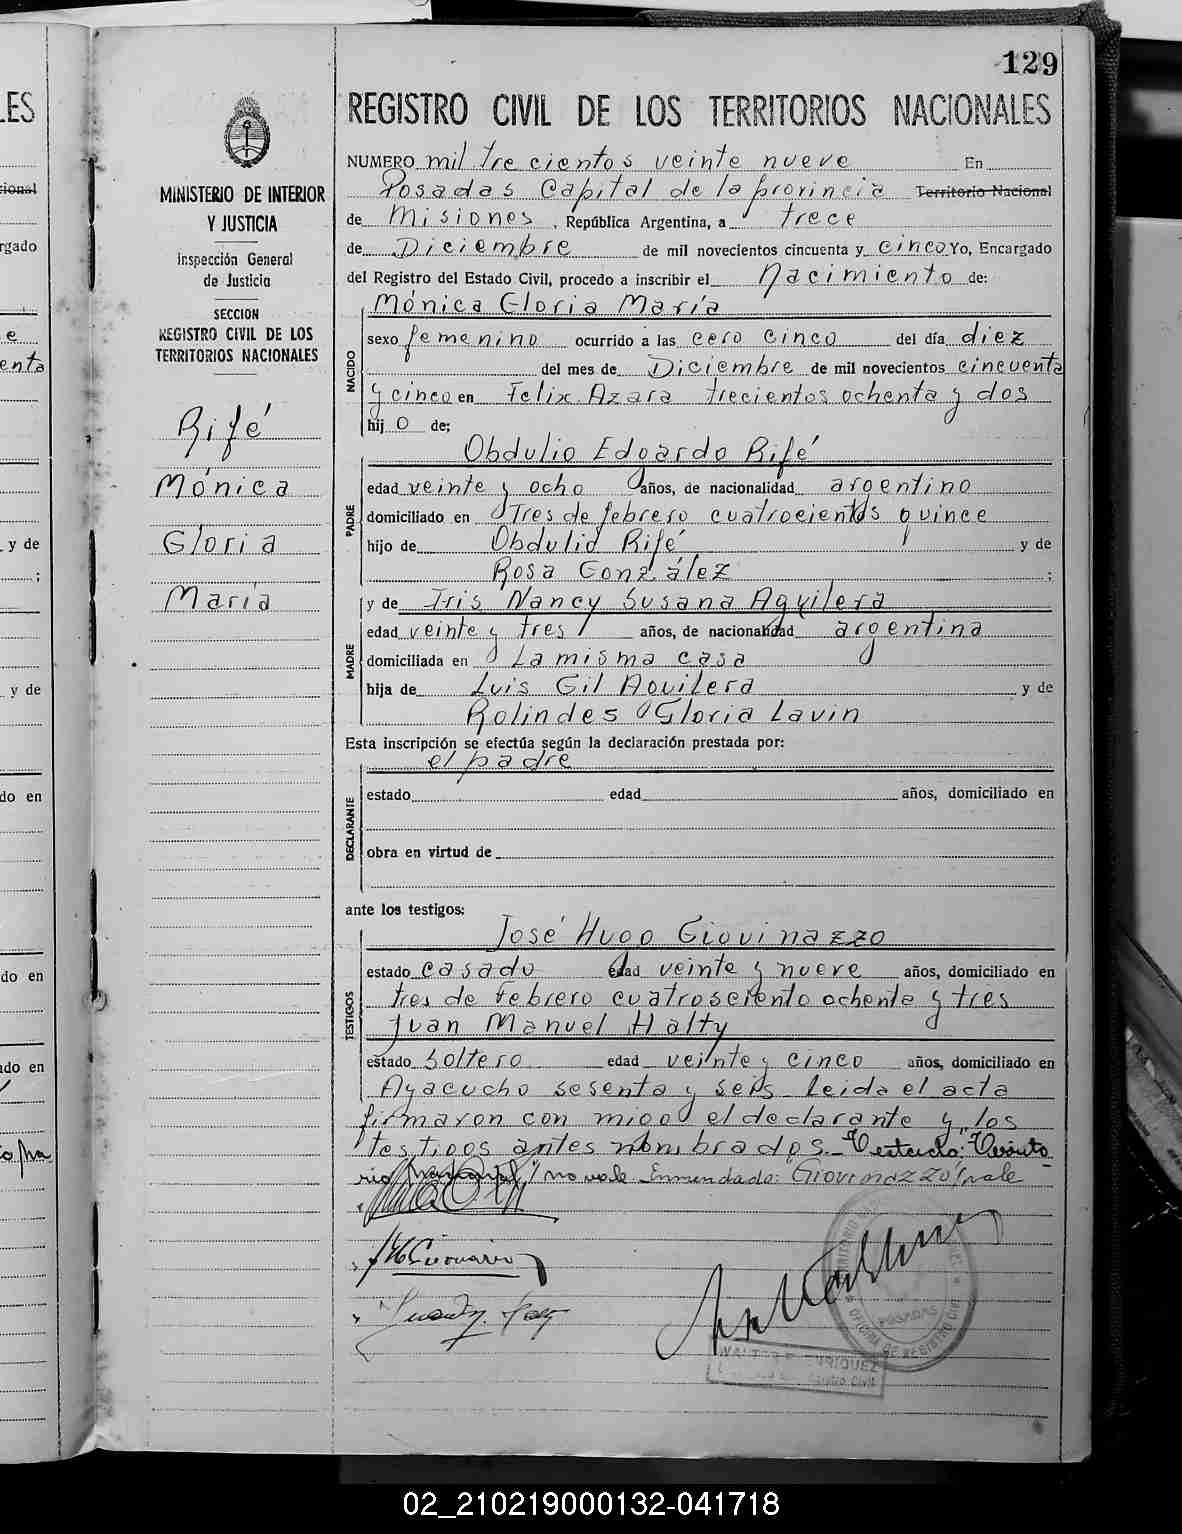 129
REGISTRO CIVIL DE LOS TERRITORIOS NACIONALES
MINISTERIO DE INTERIOR
Y JUSTICIA
Inspección General
de Justicia
SECCION
REGISTRO CIVIL DE LOS
TERRITORIOS NACIONALES
Rifé
Mónica
Gloria
María
NUMERO mil trecientos veinte nueve En
Posadas Capital de la provincia Territorio Nacional
de Misiones, República Argentina, a trece
de Diciembre de mil novecientos cincuenta y cinco Yo, Encargado
del Registro del Estado Civil, procedo a inscribir el Nacimiento de:
Mónica Gloria María
NACIDO
sexo femenino ocurrido a las cero cinco del día diez
del mes de Diciembre de mil novecientos cincuenta
y cinco en Felix Azara trecientos ochenta y dos
hij o de:
Obdulio Edgardo Rifé
PADRE
edad veinte y ocho años, de nacionalidad argentino
domiciliado en Tres de febrero cuatrocientos quince
hijo de Obdulio Rifé y de
Rosa González ;
y de Iris Nancy Susana Aguilera
MADRE
edad veinte y tres años, de nacionalidad argentina
domiciliada en La misma casa
hija de Luis Gil Aguilera y de
Rolindes Gloria Lavin
Esta inscripción se efectúa según la declaración prestada por:
el padre
DECLARANTE
estado edad años, domiciliado en
obra en virtud de
ante los testigos:
José Hugo Giovinazzo
TESTIGOS
estado casado edad veinte y nueve años, domiciliado en
tres de Febrero cuatrosciento ochente y tres
Juan Manuel Halty
estado soltero edad veinte y cinco años, domiciliado en
Ayacucho sesenta y seis Leida el acta
firmaron con migo el declarante y los
testigos antes nombrados.- Testado: "Territo-
rio Nacional" no vale Enmendado: Giovinazzo "vale
POSADAS
OFICINA DE REGISTRO CIVIL
ENRIQUEZ
Registro Civil
LES
cional
rgado
e
enta
y de
;
y de
do en
do en
do en
02_210219000132-041718